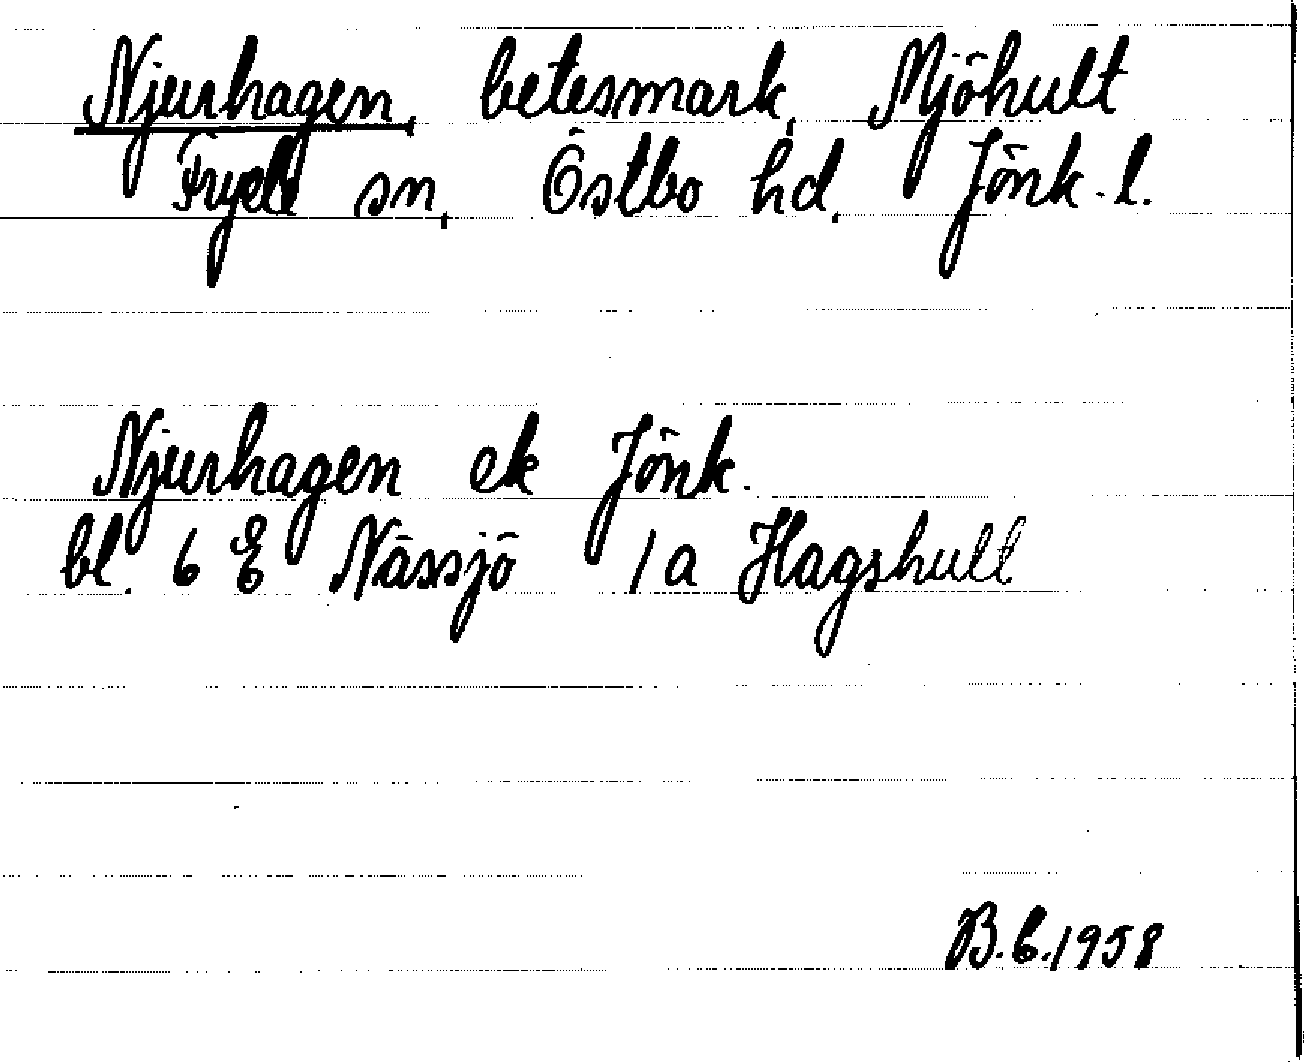 Njurhagen, betesmark, Mjöhult
Fryele sn, Östbo hd, Jönk. l.
Njurhagen ek Jönk.
bl. 6 E Nässjö 1a Hagshult
B.E.1958